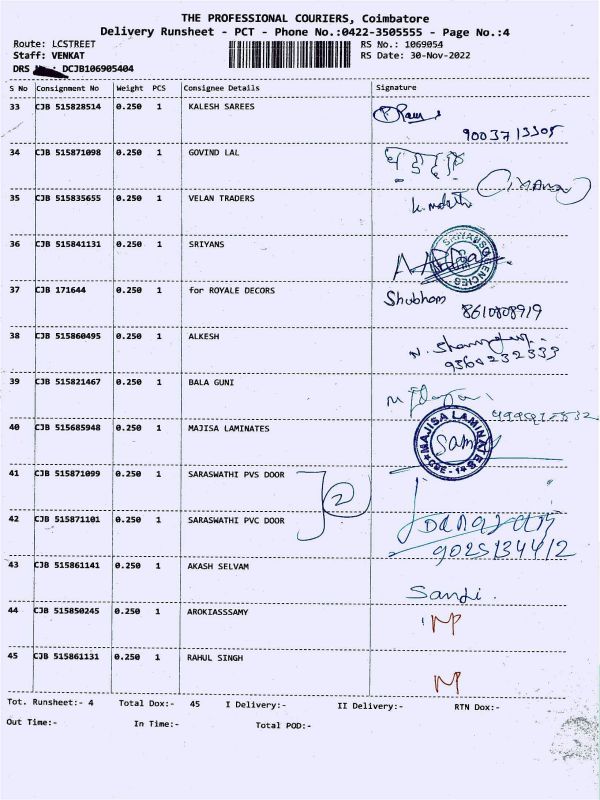 THE PROFESSIONAL COURIERS, Coimbatore
Delivery Runsheet - PCT - Phone No.:0422-3505555 - Page No.:4
Route: LCSTREET RS No.: 1069054
Staff: VENKAT RS Date: 30-Nov-2022
DRS No.: DCJB106905404
S No Consignment No Weight PCS Consignee Details Signature
33 CJB 515828514 0.250 1 KALESH SAREES
9003713305
34 CJB 515871098 0.250 1 GOVIND LAL
35 CJB 515835655 0.250 1 VELAN TRADERS
36 CJB 515841131 0.250 1 SRIYANS
37 CJB 171644 0.250 1 for ROYALE DECORS Shubham
8610808919
38 CJB 515860495 0.250 1 ALKESH
9360232333
39 CJB 515821467 0.250 1 BALA GUNI
40 CJB 515685948 0.250 1 MAJISA LAMINATES MAJISA LAMINATES
41 CJB 515871099 0.250 1 SARASWATHI PVS DOOR
2
42 CJB 515871101 0.250 1 SARASWATHI PVC DOOR
9025134412
43 CJB 515861141 0.250 1 AKASH SELVAM
44 CJB 515850245 0.250 1 AROKIASSSAMY
45 CJB 515861131 0.250 1 RAHUL SINGH
Tot. Runsheet:- 4 Total Dox:- 45 I Delivery:- II Delivery:- RTN Dox:-
Out Time:- In Time:- Total POD:-